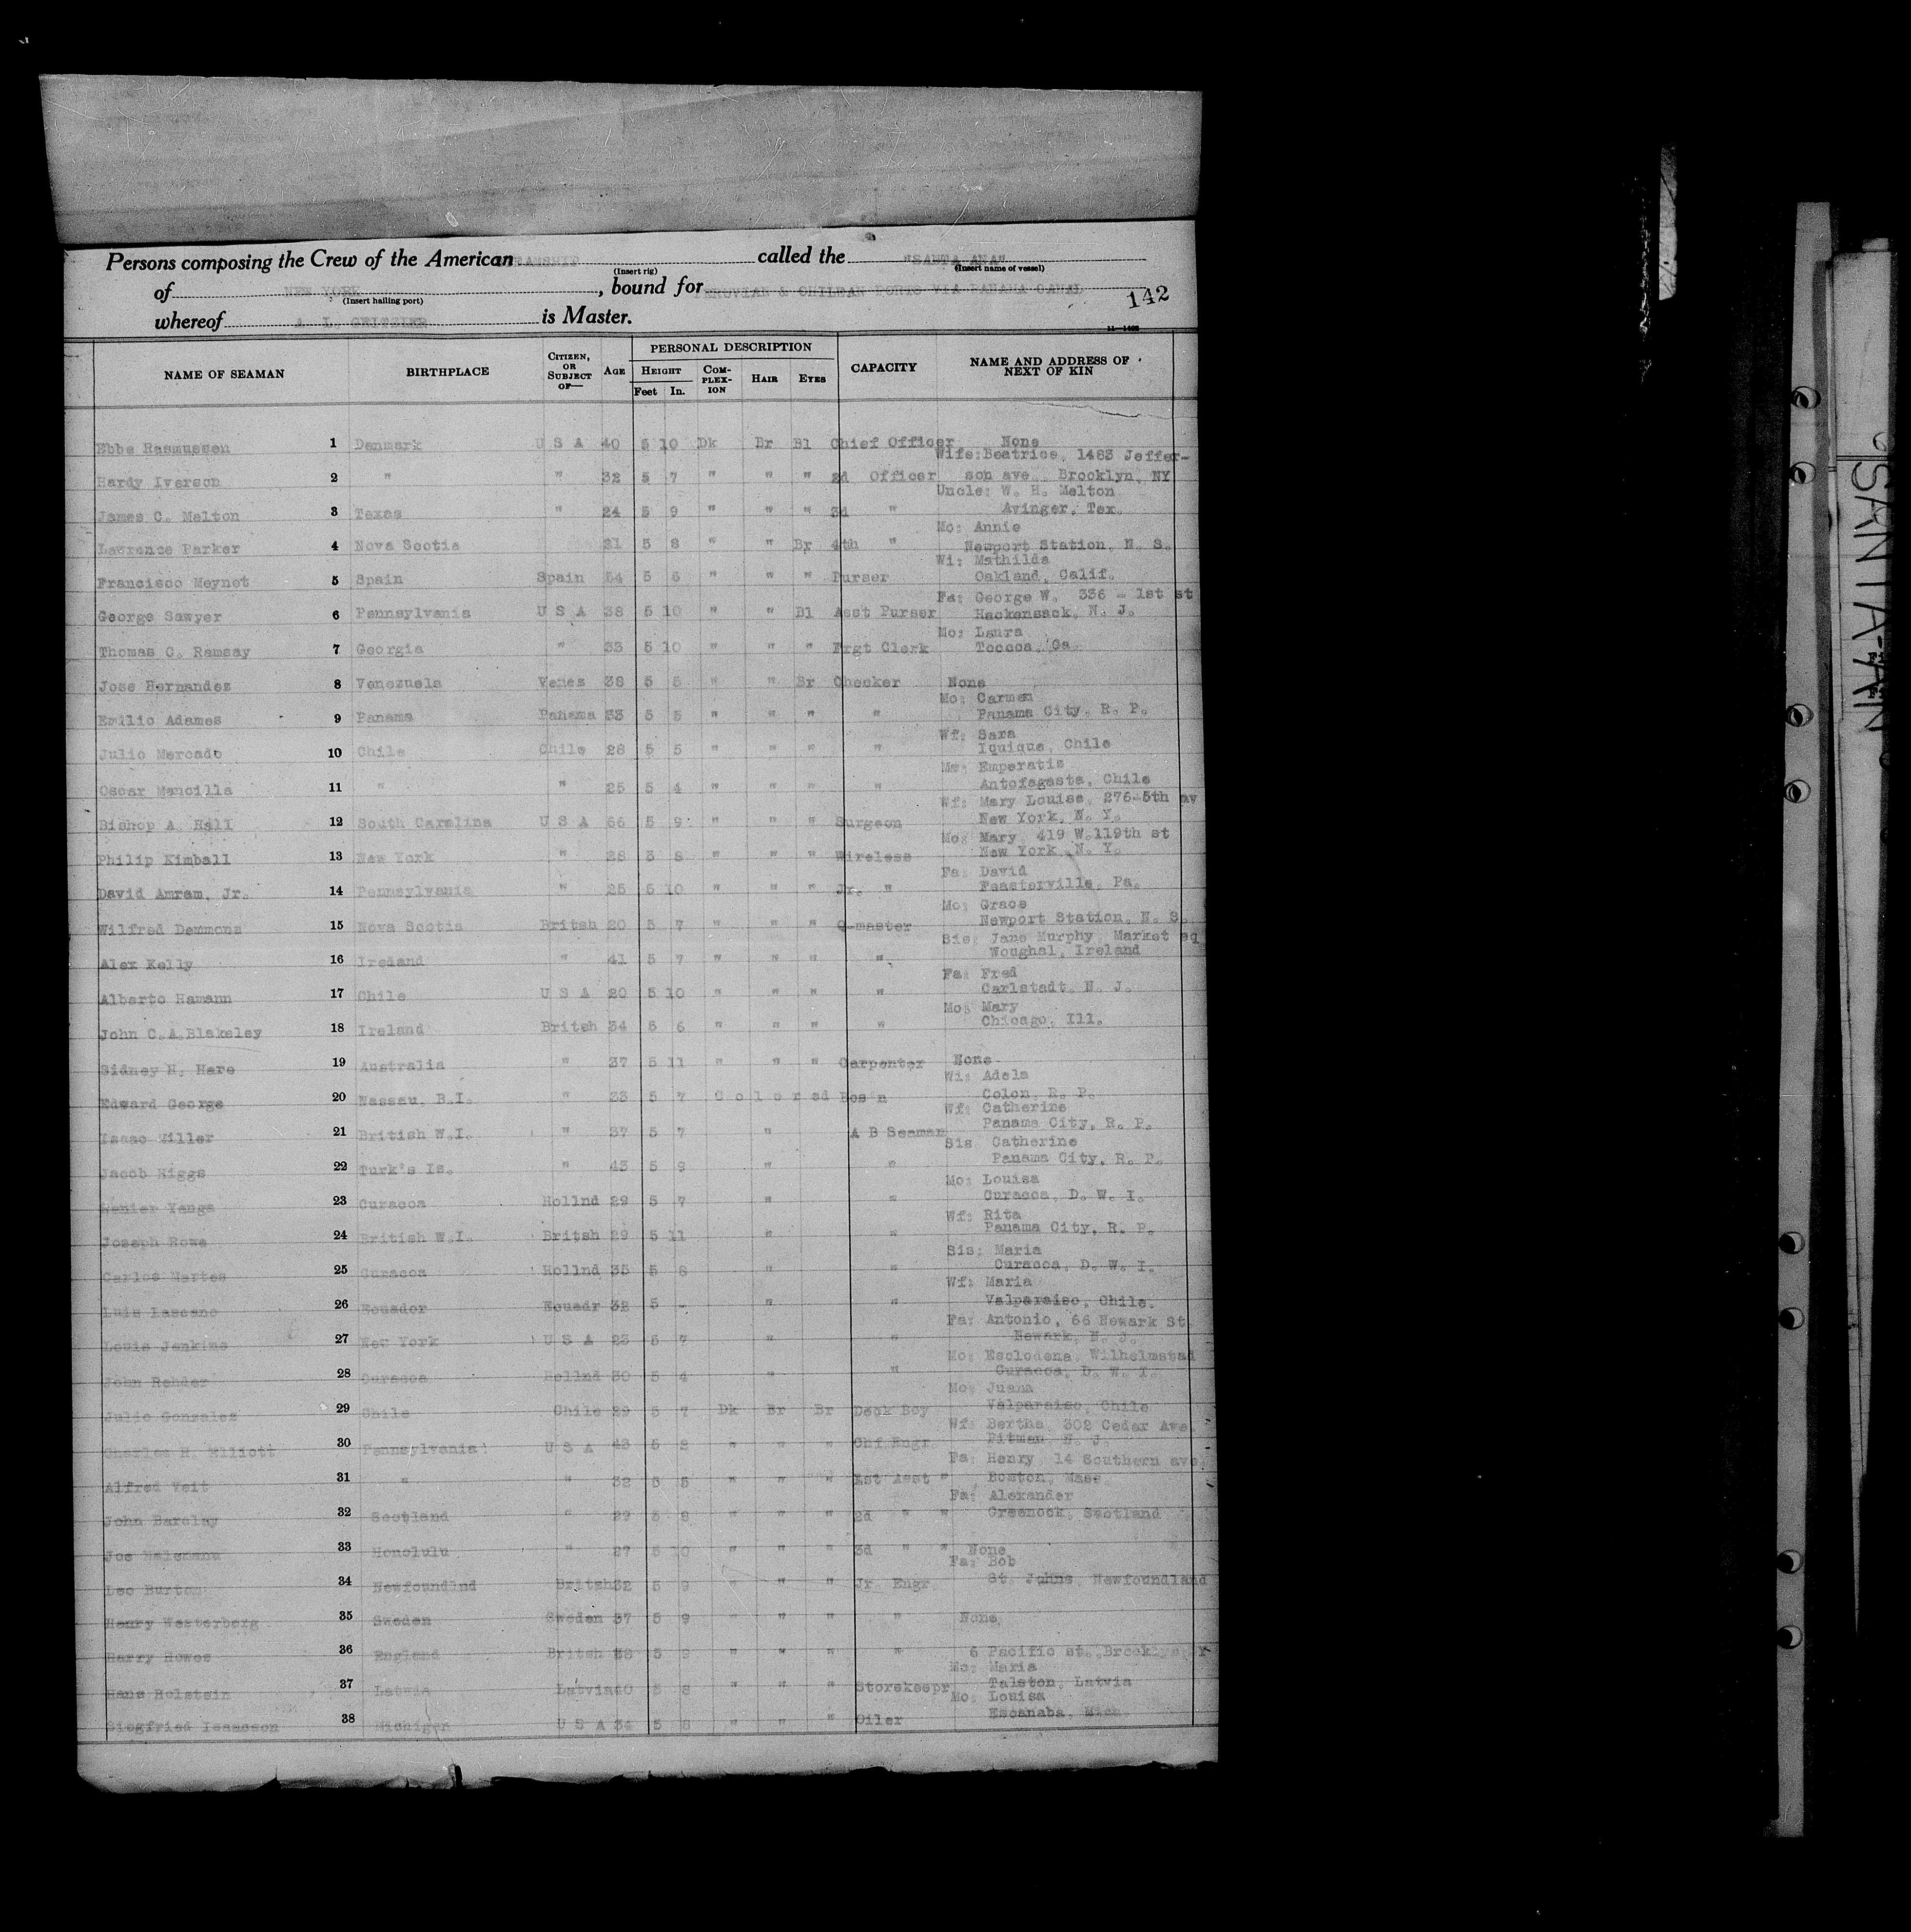 Persons composing the Crew of the American STEAMSHIP called the "SANTA ANA"
(Insert rig) (Insert name of vessel)
of NEW YORK, bound for PERUVIAN & CHILEAN PORTS VIA PANAMA CANAL
(Insert hailing port)
142
whereof A. L. is Master.
NAME OF SEAMAN BIRTHPLACE CITIZEN, OR SUBJECT OF— AGE PERSONAL DESCRIPTION CAPACITY NAME AND ADDRESS OF NEXT OF KIN
HEIGHT Feet In. COM-PLEX-ION HAIR EYES
Ebbe Rasmussen 1 Denmark U S A 40 5 10 Dk Br Bl Chief Officer None
Wife:Beatrice, 1483 Jeffer-
Hardy Iverson 2 " " 32 5 7 " " " 2d Officer son ave. Brooklyn, NY
Uncle: W. H. Melton
James C. Melton 3 Texas " 24 5 9 " " " 3d " Avinger, Tex.
Mo: Annie
Lawrence Parker 4 Nova Scotia 21 5 8 " " Br 4th " Newport Station, N. S.
Wi: Mathilda
Francisco Meynet 5 Spain Spain 54 5 6 " " " Purser Oakland, Calif.
Fa: George W. 336 - 1st st
George Sawyer 6 Pennsylvania U S A 38 5 10 " " Bl Asst Purser Hackensack, N. J.
Mo: Laura
Thomas C. Ramsay 7 Georgia " 33 5 10 " " " Frgt Clerk Tococa, Ga.
Jose Hernandez 8 Venezuela Venez 38 5 5 " " Br Checker None
Mo: Carmen
Emilio Adames 9 Panama Panama 33 5 5 " " " " Panama City, R. P.
Wf: Sara
Julio Mercado 10 Chile Chile 28 5 5 " " " " Iquique, Chile
Mo: Emperatis
Oscar Mancilla 11 " " 25 5 4 " " " " Antofagasta, Chile
Wf: Mary Louise, 276-5th av
Bishop A. Hall 12 South Carolina U S A 66 5 9 " " " Surgeon New York, N. Y.
Mo: Mary, 419 W.119th st
Philip Kimball 13 New York " 28 5 8 " " " Wireless New York, N. Y.
Fa: David
David Amram, Jr. 14 Pennsylvania " 25 5 10 " " " Jr. " Feasterville, Pa.
Mo: Grace
Wilfred Demmons 15 Nova Scotia Britsh 20 5 7 " " " Q-master Newport Station, N. S.
Sis: Jane Murphy, Market sq
Alex Kelly 16 Ireland " 41 5 7 " " " " Woughal, Ireland
Fa: Fred
Alberto Hamann 17 Chile U S A 20 5 10 " " " " Carlstadt, N. J.
Mo: Mary
John C.A.Blakeley 18 Ireland Britsh 34 5 6 " " " " Chicago, Ill.
Sidney H. Hare 19 Australia " 37 5 11 " " " Carpenter None
Wi: Adela
Edward George 20 Nassau, B.I. " 33 5 7 Colored Bos'n Colon, R. P.
Wf: Catherine
Isaac Miller 21 British W.I. " 37 5 7 " A B Seaman Panama City, R. P.
Sis Catherine
Jacob Higgs 22 Turk's Is. " 43 5 9 " " Panama City, R. P.
Mo: Louisa
Renier Yanga 23 Curacoa Hollnd 29 5 7 " " Curacoa, D. W. I.
Wf: Rita
Joseph Rowe 24 British W.I. Britsh 29 5 11 " " Panama City, R. P.
Sis: Maria
Carlos Martes 25 Curacoa Hollnd 35 5 8 " " Curacoa, D. W. I.
Wf: Maria
Luis Lascano 26 Ecuador Ecuadr 32 5 - " " Valparaiso, Chile.
Fa: Antonio, 66 Newark St
Louis Jenkins 27 New York U S A 23 5 7 " " Newark, N. J.
Mo: Esclodena, Wilhelmstad
John 28 Curacoa Hollnd 30 5 4 " " Curacoa, D. W. I.
Mo: Juana
Julio Gonzalez 29 Chile Chile 29 5 7 Dk Br Br Deck Boy Valparaiso, Chile
Wf: Bertha, 302 Cedar Ave.
Charles H. Elliott 30 Pennsylvania U S A 43 5 8 " " " Chf Engr Pitman, N. J.
Fa: Henry, 14 Southern ave
Alfred Veit 31 " " 32 5 5 " " " 1st Asst " Boston, Mass.
Fa: Alexander
John Barclay 32 Scotland " 29 5 8 " " " 2d " " Greenock, Scotland
Joe 33 Honolulu " 27 5 10 " " " 3d " " None
Fa: Bob
Leo Burton 34 Newfoundlnd Britsh 32 5 9 " " " Jr. Engr St. Johns, Newfoundland
Henry Westerberg 35 Sweden Sweden 37 5 9 " " " " None
Harry Howes 36 England Britsh 38 5 9 " " " " 6 Pacific st., Brooklyn
Mo: Maria
Hans Holstein 37 Latvia Latvia 40 5 8 " " " Storekeepr Talston, Latvia
Mo: Louisa
Siegfried Isaacson 38 Michigan U S A 34 5 8 " " " Oiler Escanaba, Mich.
SANTA AN